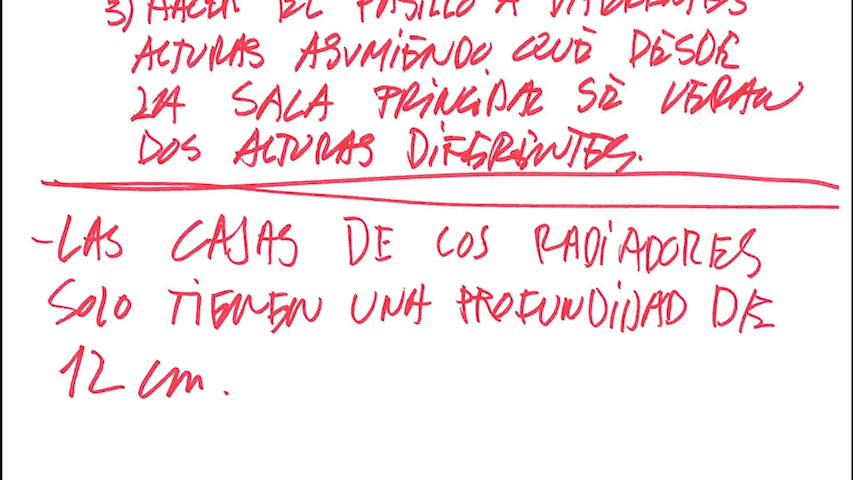 3) HACER EL PASILLO A DIFERENTES
ALTURAS ASUMIENDO QUE DESDE
LA SALA PRINCIPAL SE VERAN
DOS ALTURAS DIFERENTES.
-LAS CAJAS DE LOS RADIADORES
SOLO TIENEN UNA PROFUNDIDAD DE
12 cm.